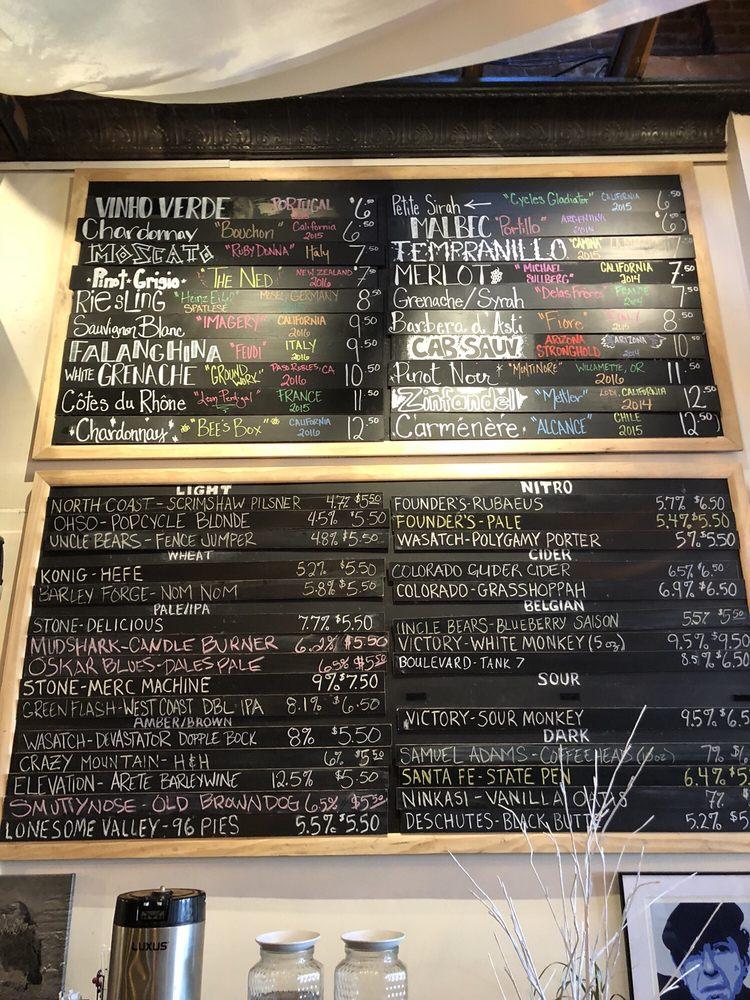 VINHO VERDE PORTUGAL $6.50
Chardonnay "Bouchon" California 2015 6.50
MOSCATO "RUBY DONNA" Italy 7.50
Pinot Grigio "THE NED" NEW ZEALAND 2016 7.50
RIESLING "Heinz Eifel" SPATLESE MOSEL, GERMANY 8.50
Sauvignon Blanc "IMAGERY" CALIFORNIA 2016 9.50
FALANGHINA "FEUDI" ITALY 2016 9.50
WHITE GRENACHE "GROUND WORK" PASO ROBLES, CA 2016 10.50
Côtes du Rhône "Leon Perdigal" FRANCE 2015 11.50
"Chardonnay" "BEE'S BOX" CALIFORNIA 2016 12.50
Petite Sirah "Cycles Gladiator" CALIFORNIA 2015 6.50
MALBEC "Portillo" ARGENTINA 2016 6.50
TEMPRANILLO "CAMINA" 2015 7.50
MERLOT "MICHAEL SULLBERG" CALIFORNIA 2014 7.50
Grenache/Syrah "Delas Frères" FRANCE 2014 7.50
Barbera d'Asti "Fiore" ITALY 2015 8.50
CAB SAUV ARIZONA STRONGHOLD ARIZONA 2014 10.50
Pinot Noir "MONTINORE" WILLAMETTE, OR 2016 11.50
Zinfandel "Mettler" LODI, CALIFORNIA 2014 12.50
Carménère "ALCANCE" CHILE 2015 12.50
LIGHT
NORTH COAST-SCRIMSHAW PILSNER 4.7% $5.50
OHSO-POPCYCLE BLONDE 4.5% $5.50
UNCLE BEARS-FENCE JUMPER 4.8% $5.50
WHEAT
KONIG-HEFE 5.2% $5.50
BARLEY FORGE-NOM NOM 5.8% $5.50
PALE/IPA
STONE-DELICIOUS 7.7% $5.50
MUDSHARK-CANDLE BURNER 6.2% $5.50
OSKAR BLUES-DALES PALE 6.5% $5.50
STONE-MERC MACHINE 9% $7.50
GREEN FLASH-WEST COAST DBL IPA 8.1% $6.50
AMBER/BROWN
WASATCH-DEVASTATOR DOPPLE BOCK 8% $5.50
CRAZY MOUNTAIN-H&H 6% $5.50
ELEVATION-ARETE BARLEYWINE 12.5% $5.50
SMUTTYNOSE-OLD BROWN DOG 6.5% $5.50
LONESOME VALLEY-96 PIES 5.5% $5.50
NITRO
FOUNDER'S-RUBAEUS 5.7% $6.50
FOUNDER'S-PALE 5.4% $5.50
WASATCH-POLYGAMY PORTER 5% $5.50
CIDER
COLORADO GLIDER CIDER 6.5% $6.50
COLORADO-GRASSHOPPAH 6.9% $6.50
BELGIAN
UNCLE BEARS-BLUEBERRY SAISON 5.5% $5.50
VICTORY-WHITE MONKEY (5 oz) 9.5% $9.50
BOULEVARD-TANK 7 8.5% $6.50
SOUR
VICTORY-SOUR MONKEY 9.5% $6.5
DARK
SAMUEL ADAMS-COFFEEHEAD 7% $6
SANTA FE-STATE PEN 6.4% $5
NINKASI-VANILLA OATIS 7%
DESCHUTES-BLACK BUTTE 5.2% $5
LUXUS